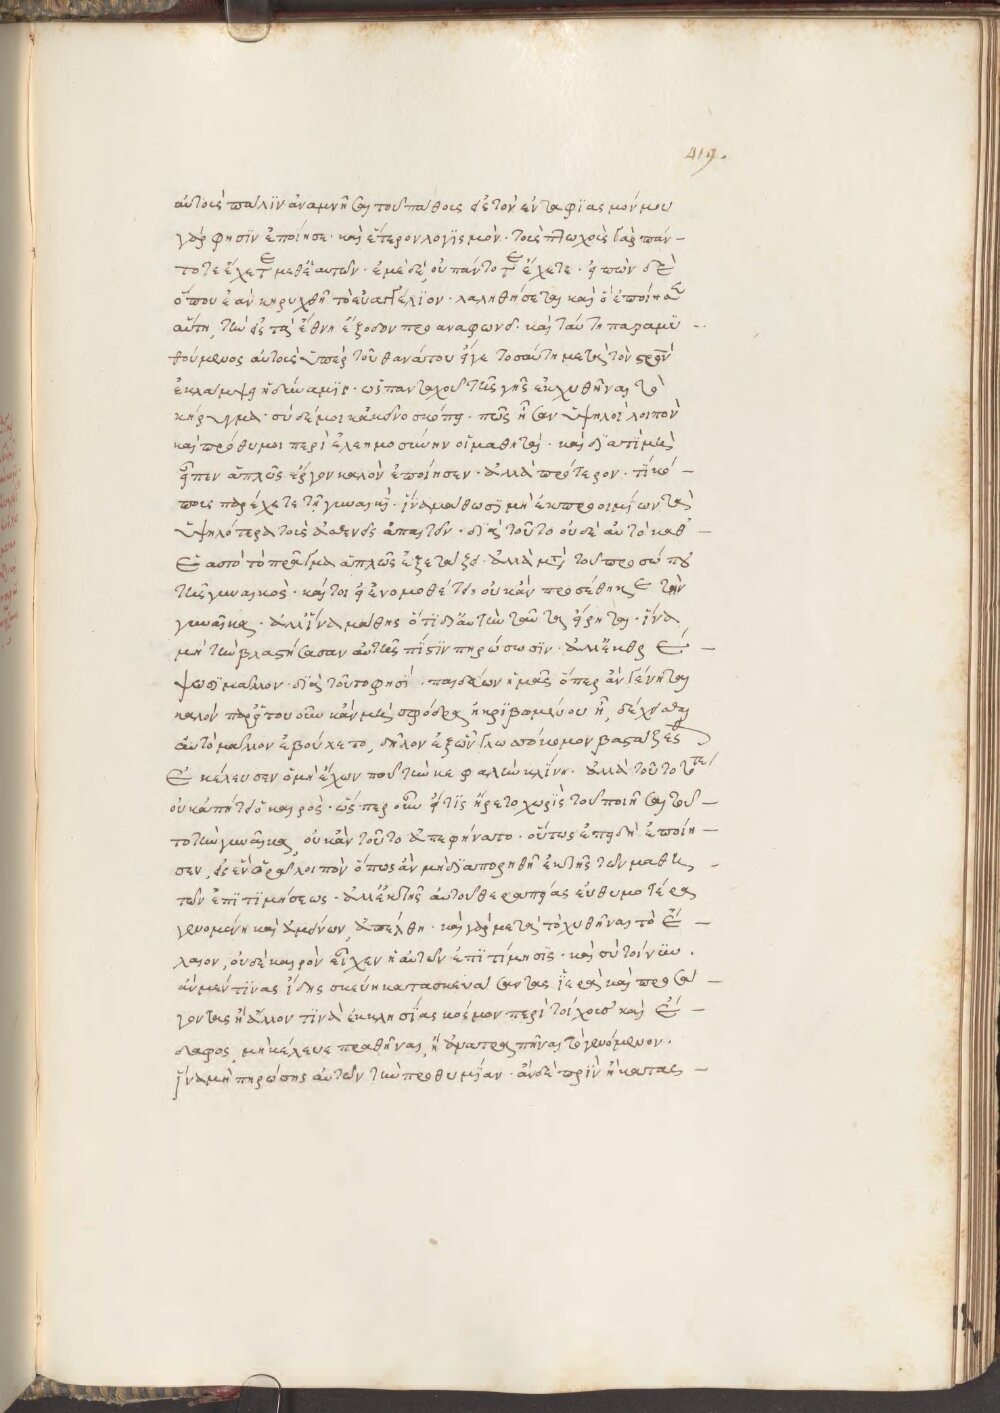 419.
αὐτοῖς πάλιν ἀναμνῆσαι τοῦ πάθους εἰς τὸν ἐνταφιασμόν μου
γάρ φησὶν ἐποίησε· καὶ ἕτερον λογισμόν· τοὺς πτωχοὺς γὰρ πάν–
τοτε ἔχετε μεθ' ἑαυτῶν· ἐμὲ δὲ οὐ πάντοτε ἔχετε· εἰπὼν δὲ
ὅπου ἐὰν κηρυχθῇ τὸ εὐαγγέλιον· λαληθήσεται καὶ ὃ ἐποίησεν
αὕτη, τὴν εἰς τὰ ἔθνη ἔξοδον προαναφωνεῖ· καὶ ταύτῃ παραμυ–
θούμενος αὐτοὺς ὑπὲρ τοῦ θανάτου εἴγε τοσαύτη μετὰ τὸν σταυρὸν
ἐκλάμψει ἡ δύναμις· ὡς πανταχοῦ τῆς γῆς ἐκχυθῆναι τὸ
κήρυγμα· σὺ δέ μοι κἀκεῖνο σκόπει· πῶς ἦσαν ὑψηλοὶ λοιπὸν
καὶ πρόθυμοι περὶ ἐλεημοσύνην οἱ μαθηταί· καὶ διατί μὲν
εἶπεν ἁπλῶς ἔργον καλὸν ἐποίησεν· ἀλλὰ πρότερον· τί κό–
πους παρέχετε τῇ γυναικί· ἵνα μάθωσι μὴ ἐκ προοιμίων τὰ
ὑψηλότερα τοὺς ἀσθενεῖς ἀπαιτεῖν· διὰ τοῦτο οὐδὲ αὐτὸ καθ'–
ἑαυτὸ τὸ πρᾶγμα ἁπλῶς ἐξετάζει· ἀλλὰ μετὰ τοῦ προσώπου
τῆς γυναικός· καίτοι εἰ ἐνομοθέτει, οὐκ ἂν προσέθηκε τὴν
γυναῖκα· ἀλλ' ἵνα μάθῃς ὅτι δι' αὐτὴν ταῦτα εἴρηται· ἵνα
μὴ τὴν βλαστήσασαν αὐτῆς πίστιν πηρώσωσιν· ἀλλ' ἐκθρέ–
ψωσι μᾶλλον· διὰ τοῦτο φησί· παιδεύων ἡμᾶς ὅπερ ἂν γένηται
καλὸν παρ' ὁτουοῦν κἂν μὴ σφόδρα ἠκριβωμένον ᾖ, δέχεσθαι
αὐτὸ μᾶλλον ἐβούλετο, δῆλον ἐξ ὧν γλωσσόκομον βαστάζεσθαι
ἐκέλευσεν ὁ μὴ ἔχων ποῦ τὴν κεφαλὴν κλίνῃ· ἀλλὰ τοῦτο τότε
οὐκ ἀπῄτει ὁ καιρός· ὥσπερ οὖν εἴ τις ἤρετο χωρὶς τοῦ ποιῆσαι τοῦ–
το τὴν γυναῖκα, οὐκ ἂν τοῦτο ἀπεφήνατο· οὕτως ἐπειδὴ ἐποίη–
σεν, εἰς ἓν ὁρᾷ λοιπὸν ὅπως ἂν μὴ διαπορηθῇ ἐκ τῆς τῶν μαθη–
τῶν ἐπιτιμήσεως· ἀλλ' ἐκ τῆς αὐτοῦ θεραπείας εὐθυμοτέρα
γενομένη καὶ ἀμείνων, ἀπέλθῃ· καὶ γὰρ μετὰ τὸ χυθῆναι τὸ ἔ–
λαιον, οὐδὲ καιρὸν εἶχεν ἡ αὐτῶν ἐπιτίμησις· καὶ σὺ τοίνυν·
ἂν μέν τινας ἴδῃς σκεύη κατασκευάσαντας ἱερὰ καὶ προσά–
γοντας ἢ ἄλλον τινὰ ἐκκλησίας κόσμον περὶ τοίχους καὶ ἔ–
δαφος, μὴ κέλευε πραθῆναι, ἢ ἀνατραπῆναι τὸ γενόμενον·
ἵνα μὴ πηρώσῃς αὐτῶν τὴν προθυμίαν· ἂν δὲ πρὶν ἢ κατασ–